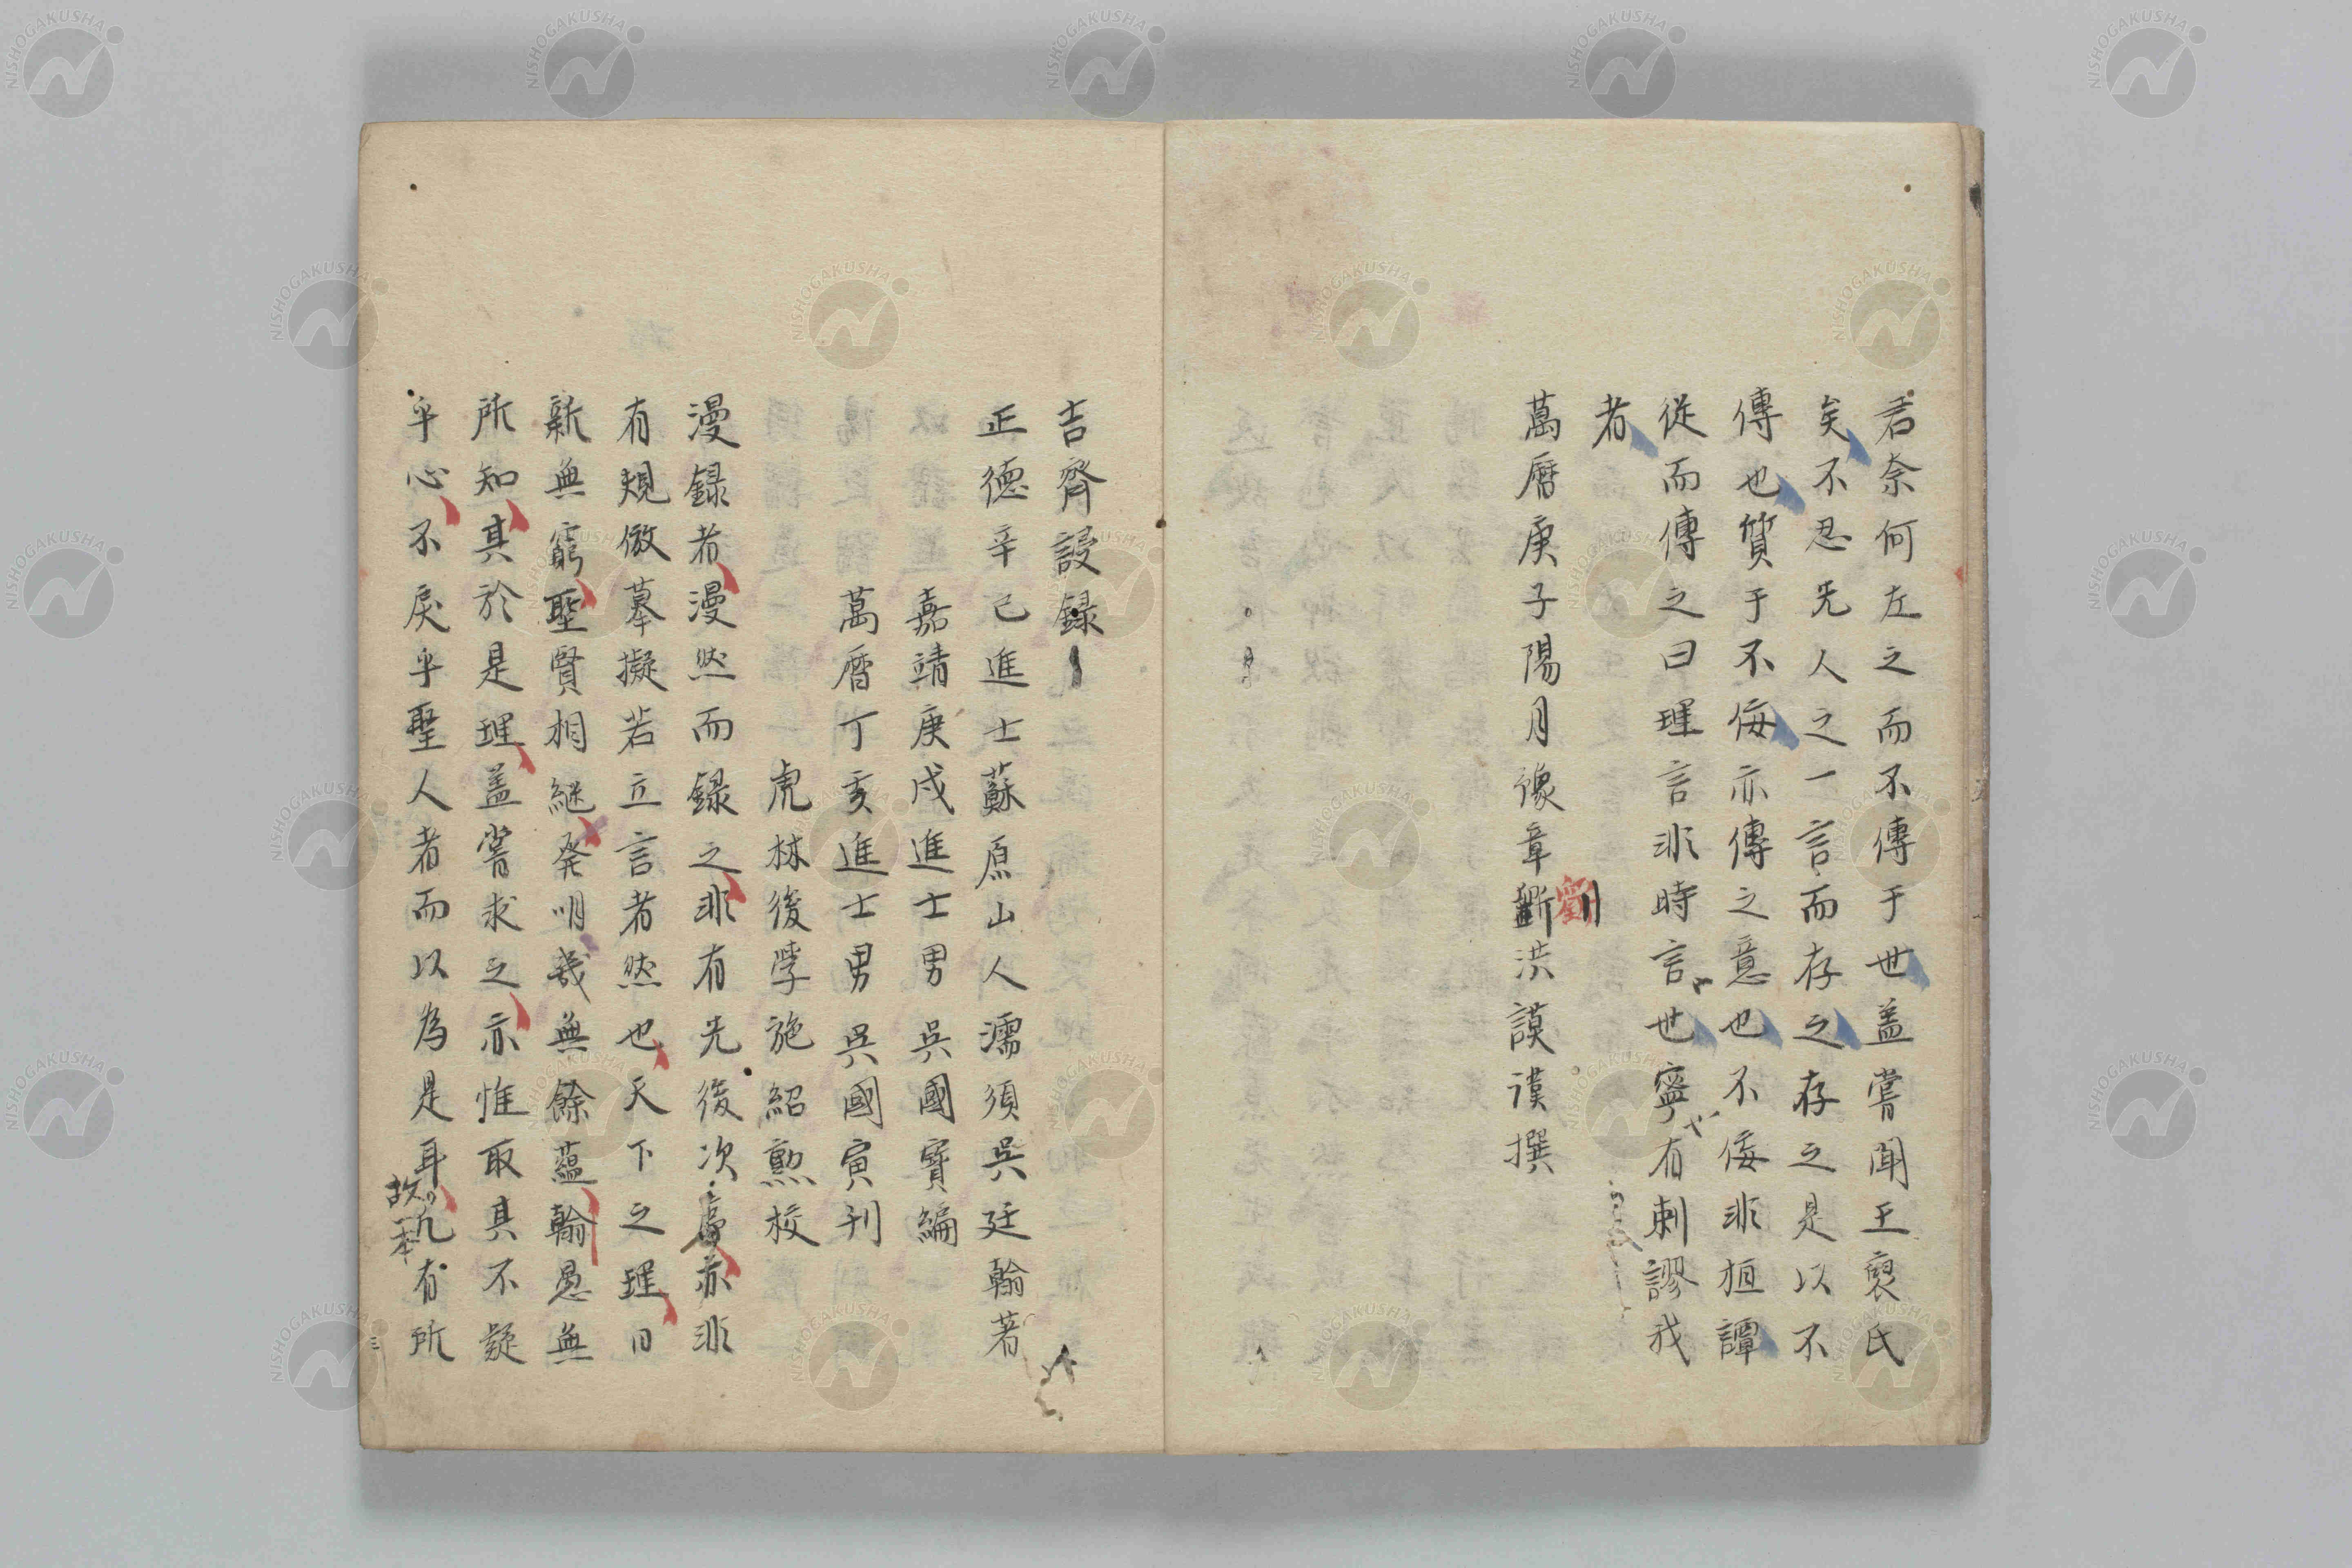 君奈何左之而不傳于世盖嘗聞王裒氏
矣不忍先人之一言而存之存之是以不
傳也質于不侮亦傳之意也不佞非桓譚
從而傳之曰理言非時言也寧有刺謬我
者
萬曆庚子陽月豫章劉洪謨謹撰
吉齊謾録
正德辛巳進士蘇原山人濡須吳廷翰著
嘉靖庚戌進士男吳國寶編
萬曆丁亥進士男吳國寅刊
虎林後學施紹勲校
漫録者漫然而録之非有先後次序亦非
有規倣摹擬若立言者然也天下之理日
新無窮聖賢相継発明幾無餘蘊翰愚無
所知其於是理盖嘗求之亦惟取其不疑
乎心不戾乎聖人者而以為是耳凡有所
故一本
三